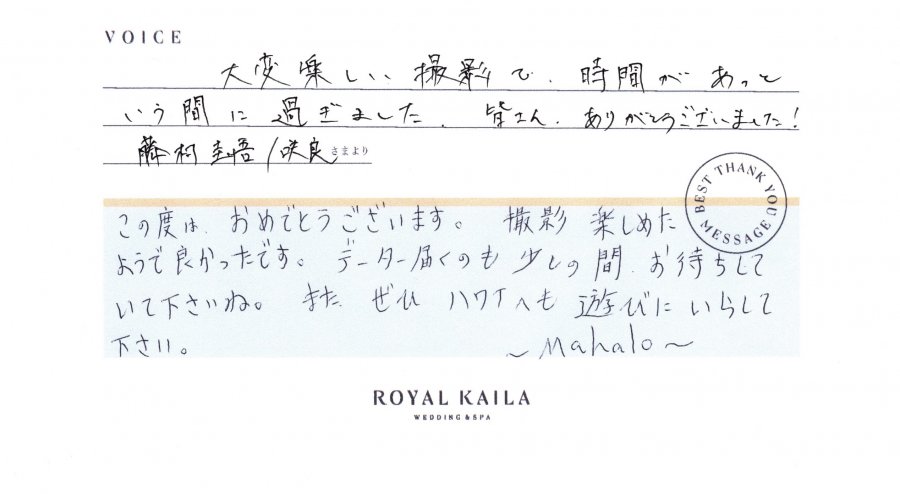 VOICE
大変楽しい撮影で、時間があっと
いう間に過ぎました。皆さん、ありがとうございました!
藤村圭吾/咲良さまより
BEST THANK YOU MESSAGE
この度は、おめでとうございます。 撮影 楽しめた
ようで良かったです。データー届くのも少しの間、お待ちして
いて下さいね。 また ぜひ ハワイへも 遊びにいらして
下さい。 ~Mahalo~
ROYAL KAILA
WEDDING & SPA